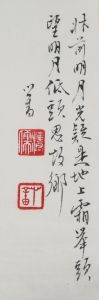 牀前明月光疑是地上霜舉頭
望明月低頭思故鄉
心畬